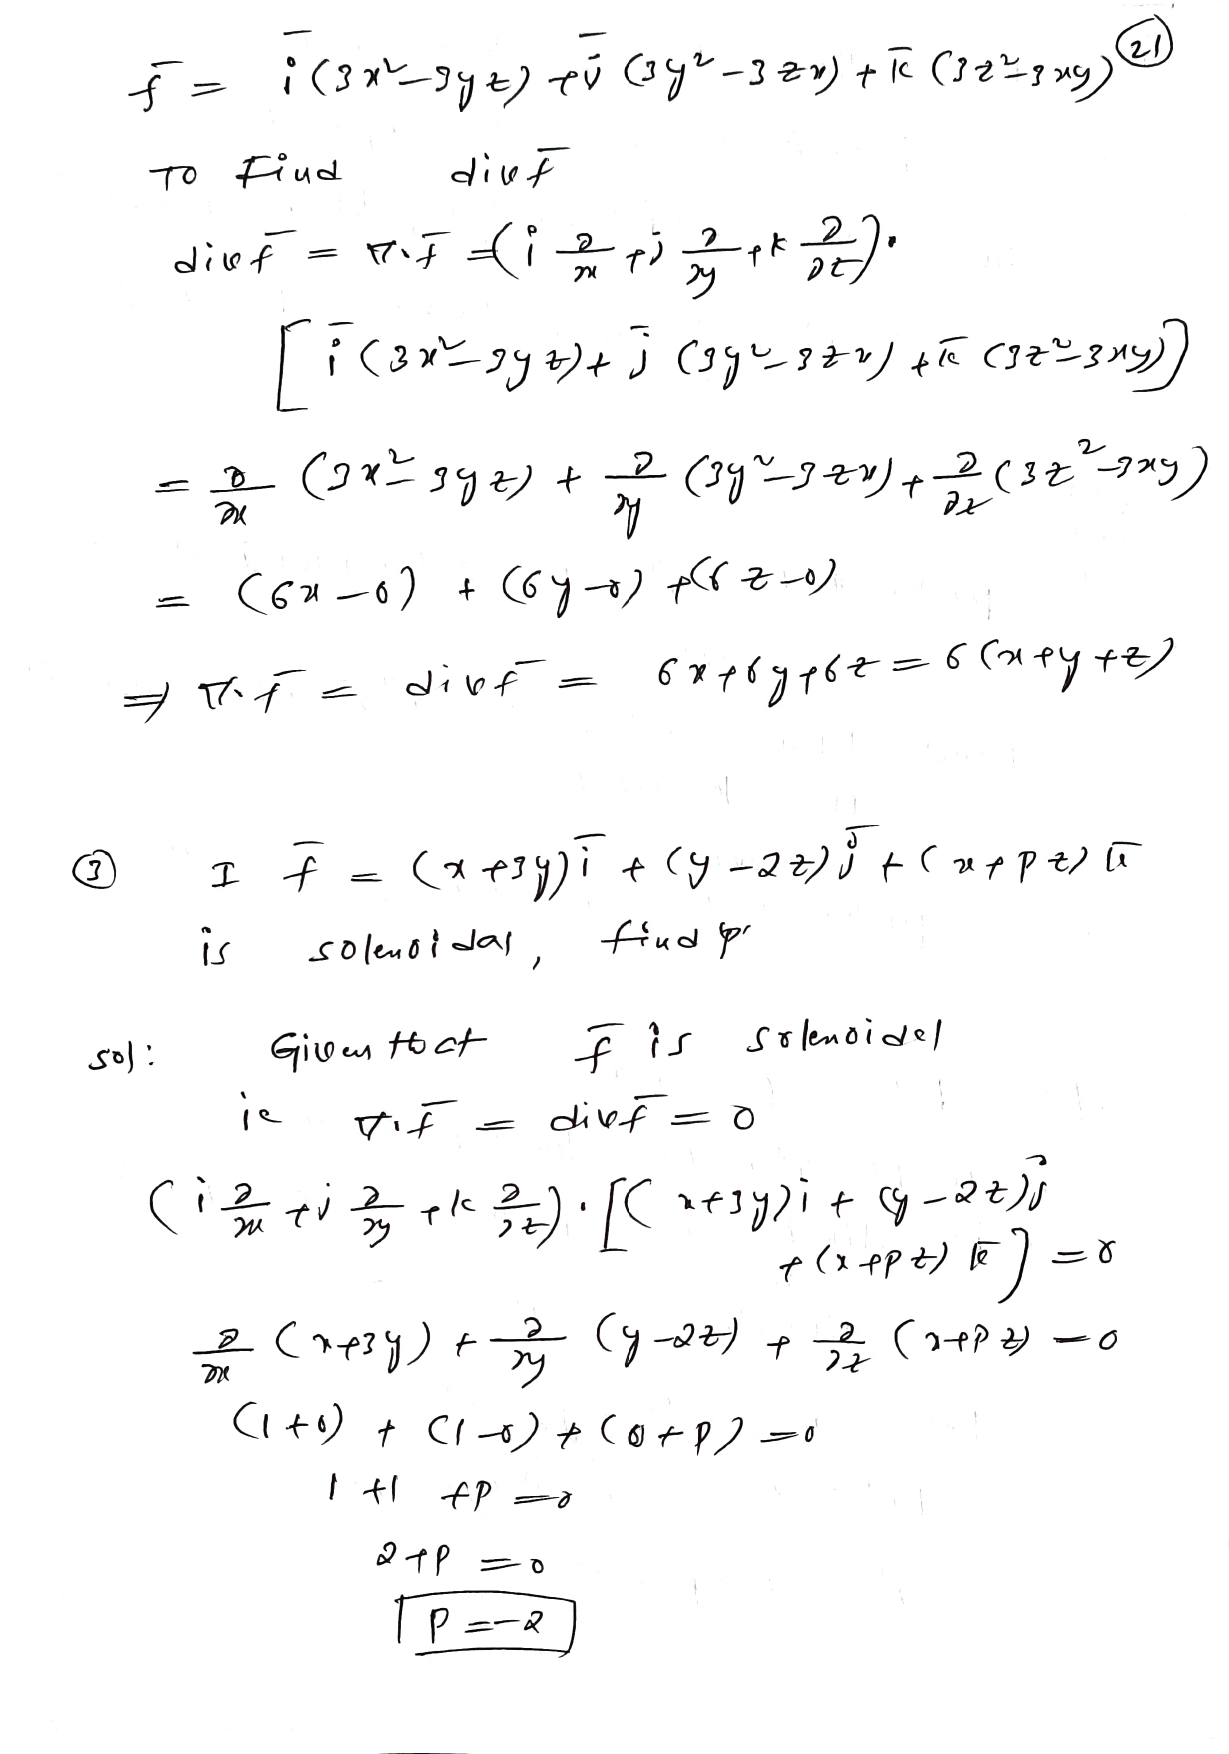 f̄ = ī (3x²-3yz) + j̄ (3y²-3zx) + k̄ (3z²-3xy) (21)
To Find div f̄
div f̄ = ∇·f̄ = (i ∂/∂x + j ∂/∂y + k ∂/∂z)·
[ī (3x²-3yz) + j̄ (3y²-3zx) + k̄ (3z²-3xy)]
= ∂/∂x (3x²-3yz) + ∂/∂y (3y²-3zx) + ∂/∂z (3z²-3xy)
= (6x-0) + (6y-0) + (6z-0)
⇒ ∇·f̄ = div f̄ = 6x+6y+6z = 6(x+y+z)
(3) I f̄ = (x+3y) ī + (y-2z) j̄ + (x+pz) k̄
is solenoidal, find p
sol: Given that f̄ is solenoidal
ie ∇·f̄ = div f̄ = 0
(i ∂/∂x + j ∂/∂y + k ∂/∂z)·[(x+3y) i + (y-2z) j̄
+ (x+pz) k̄] = 0
∂/∂x (x+3y) + ∂/∂y (y-2z) + ∂/∂z (x+pz) = 0
(1+0) + (1-0) + (0+p) = 0
1+1+p = 0
2+p = 0
p = -2